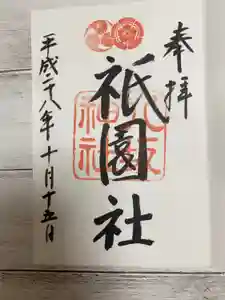 奉拝
祇園社
八坂
神社
平成二十八年十月十五日